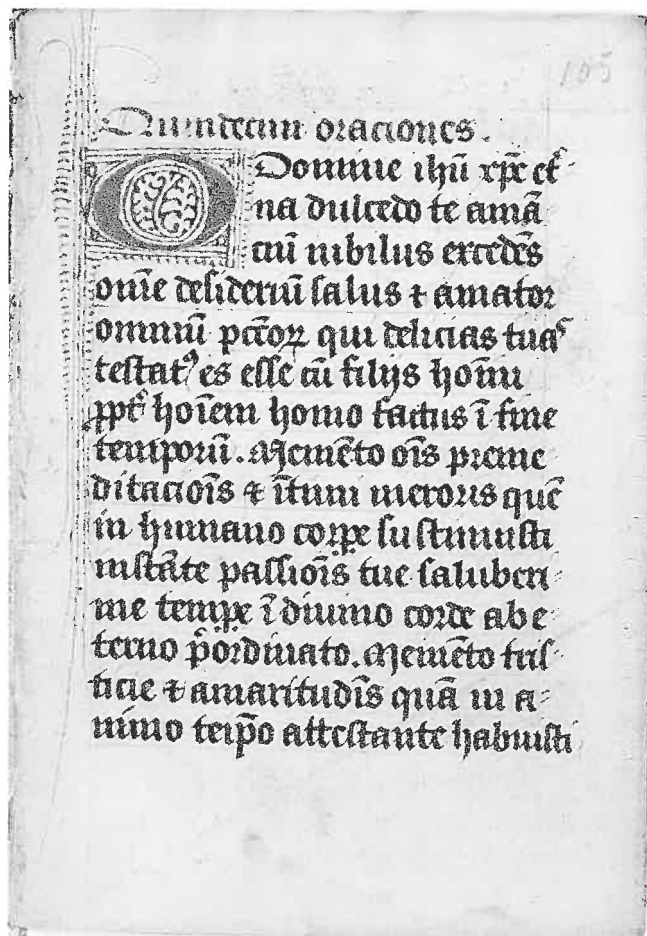 105
Quindecim oraciones.
O Domine ihū xp̄e et̾
na dulcedo te amā
ciū iubilus excedēs
om̄e desideriū salus ⁊ amator
omniū pctoꝝ qui delicias tuas
testatꝰ es esse cū filijs homī
ꝓpt̾ hoīem homo factus ī fine
temporū. Memēto oīs preme
ditacioīs ⁊ ītimi meroris quē
in humano corꝑe sustinuisti
instāte passioīs tue saluberri
me temꝑe ī diuino corde ab e
terno p̄ordinato. Memēto tris
ticie ⁊ amaritudīs quā in a
nimo teip̄o attestante habuisti